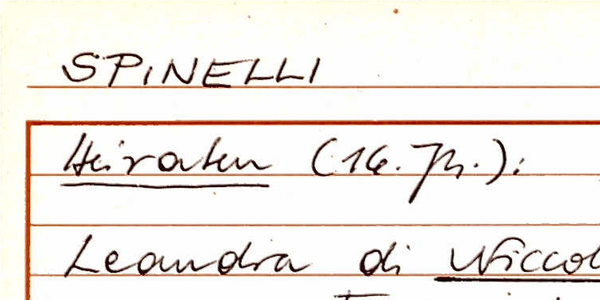 SPINELLI
Heiraten (16. Jh.):
Leandra di Niccol